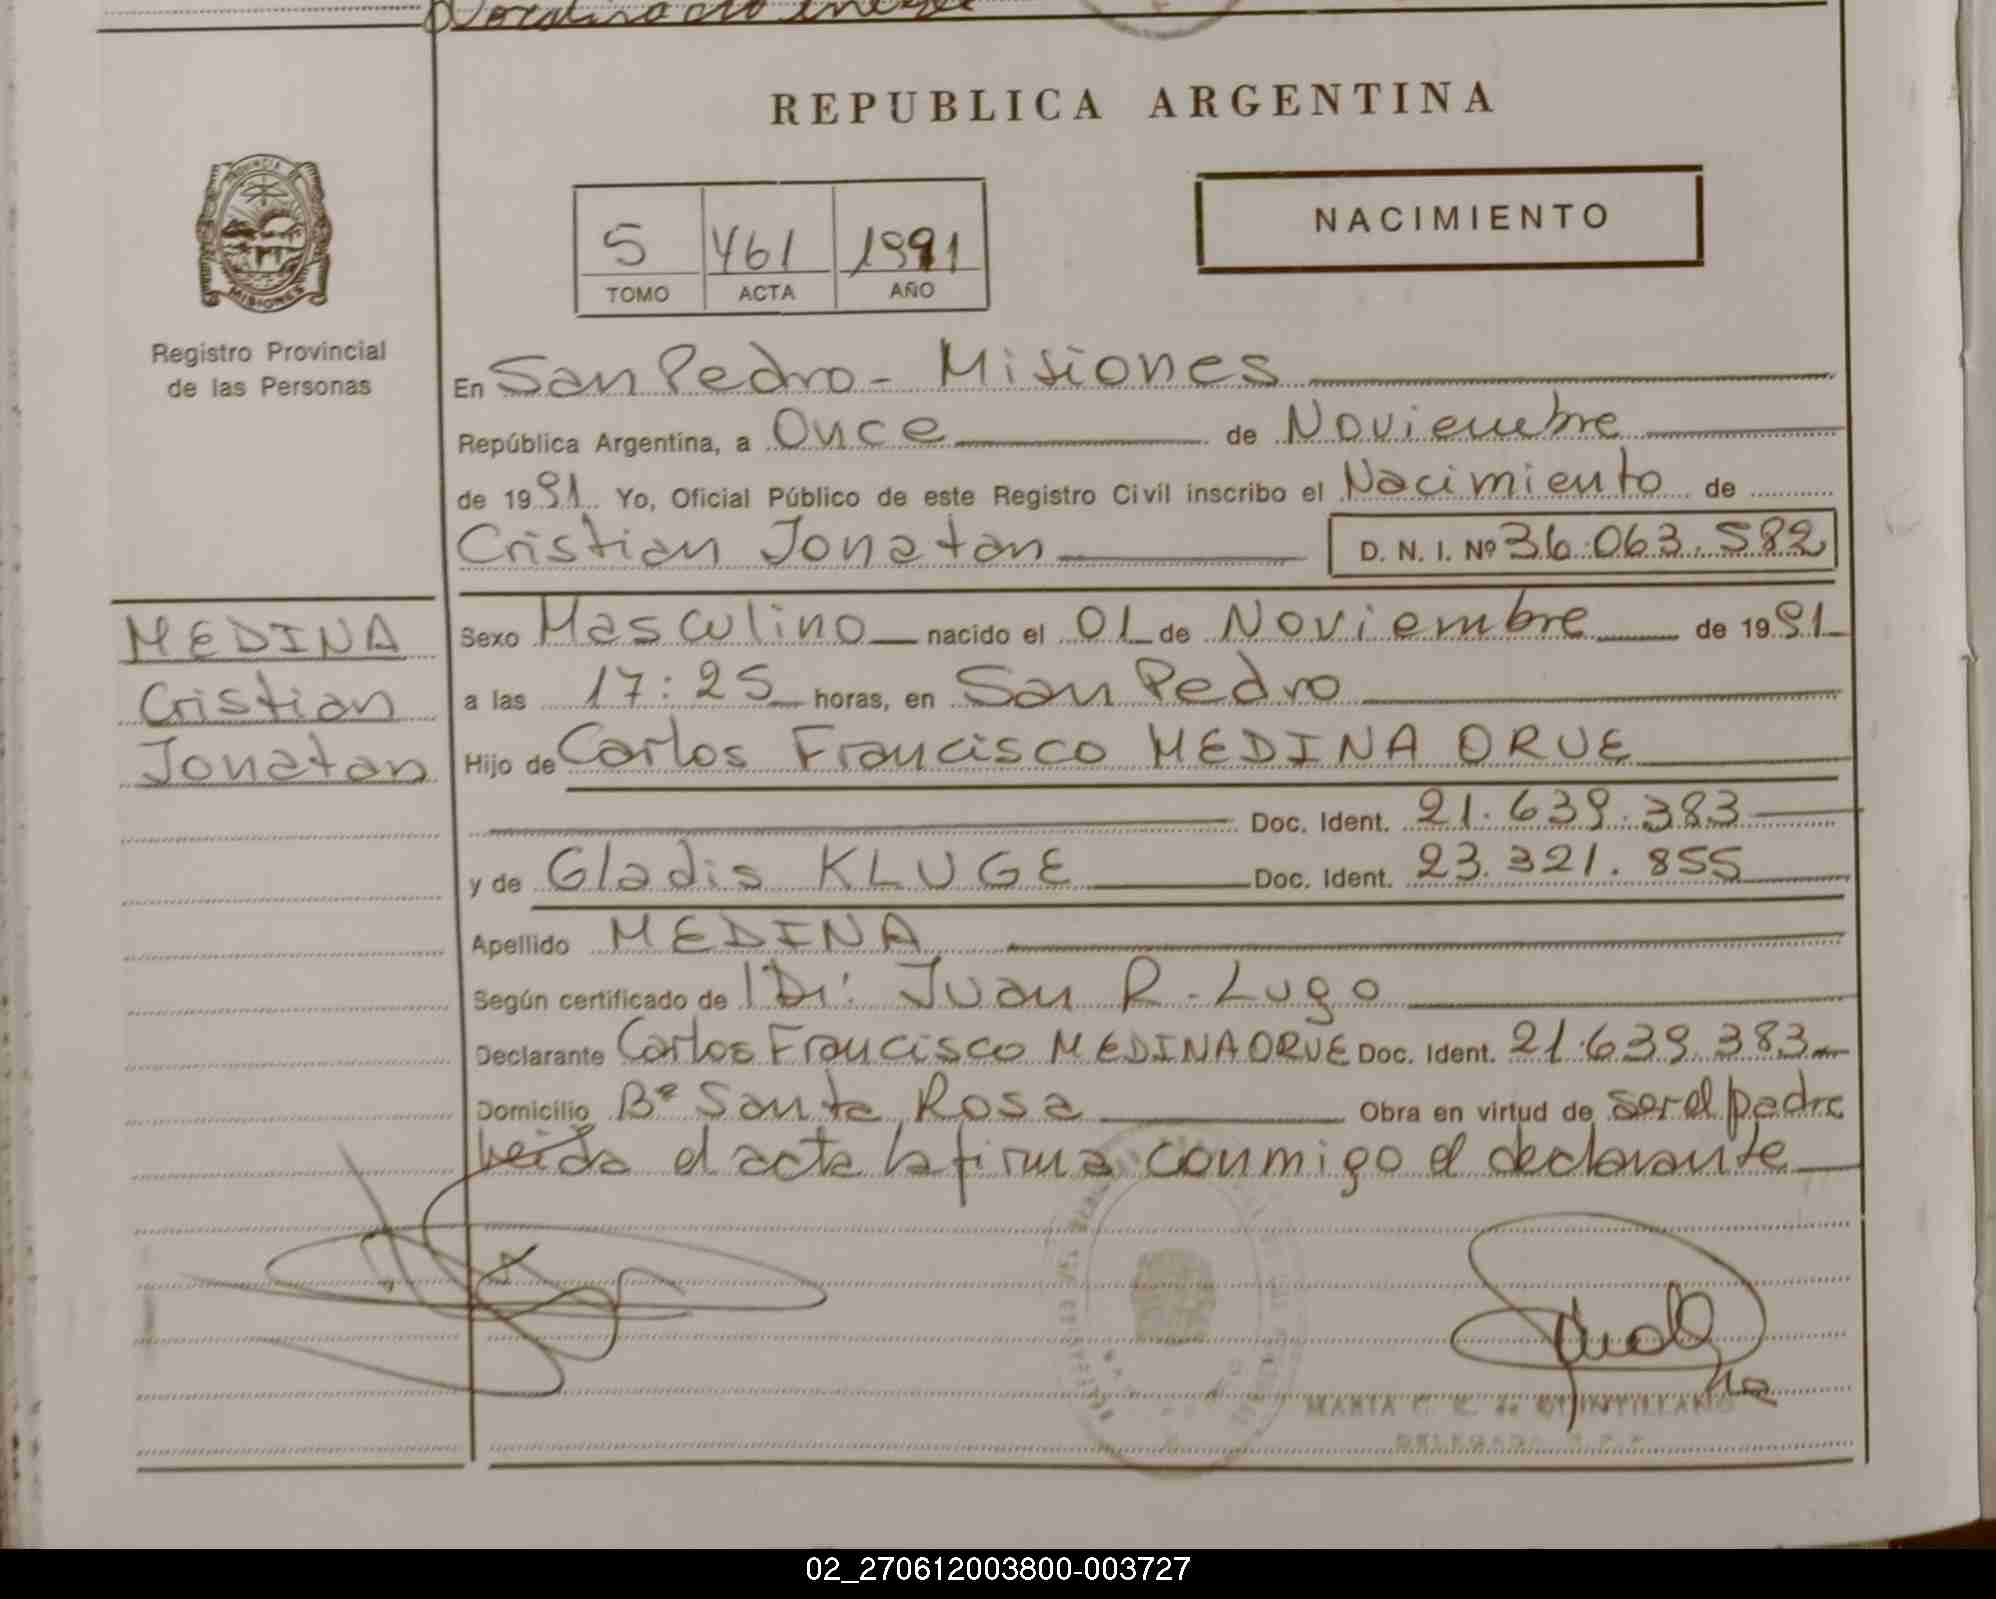 REPUBLICA ARGENTINA
NACIMIENTO
5 461 1991
TOMO ACTA AÑO
MISIONES
Registro Provincial
de las Personas
En San Pedro - Misiones
República Argentina, a Once de Noviembre
de 1991 Yo, Oficial Público de este Registro Civil inscribo el Nacimiento de
Cristian Jonatan D. N. I. Nº 36.063.582
MEDINA
Cristian
Jonatan
Sexo Masculino nacido el 01 de Noviembre de 1991
a las 17:25 horas, en San Pedro
Hijo de Carlos Francisco MEDINA ORUE
Doc. Ident. 21.639.383
y de Gladis KLUGE Doc. Ident. 23.321.855
Apellido MEDINA
Según certificado de Dr. Juan R. Lugo
Declarante Carlos Francisco MEDINA ORUE Doc. Ident. 21.639.383
Domicilio Bº Santa Rosa Obra en virtud de ser el padre
leida el acta la firma conmigo el declarante
MARIA C. R. de QUINTILLANO
DELEGADA
02_270612003800-003727